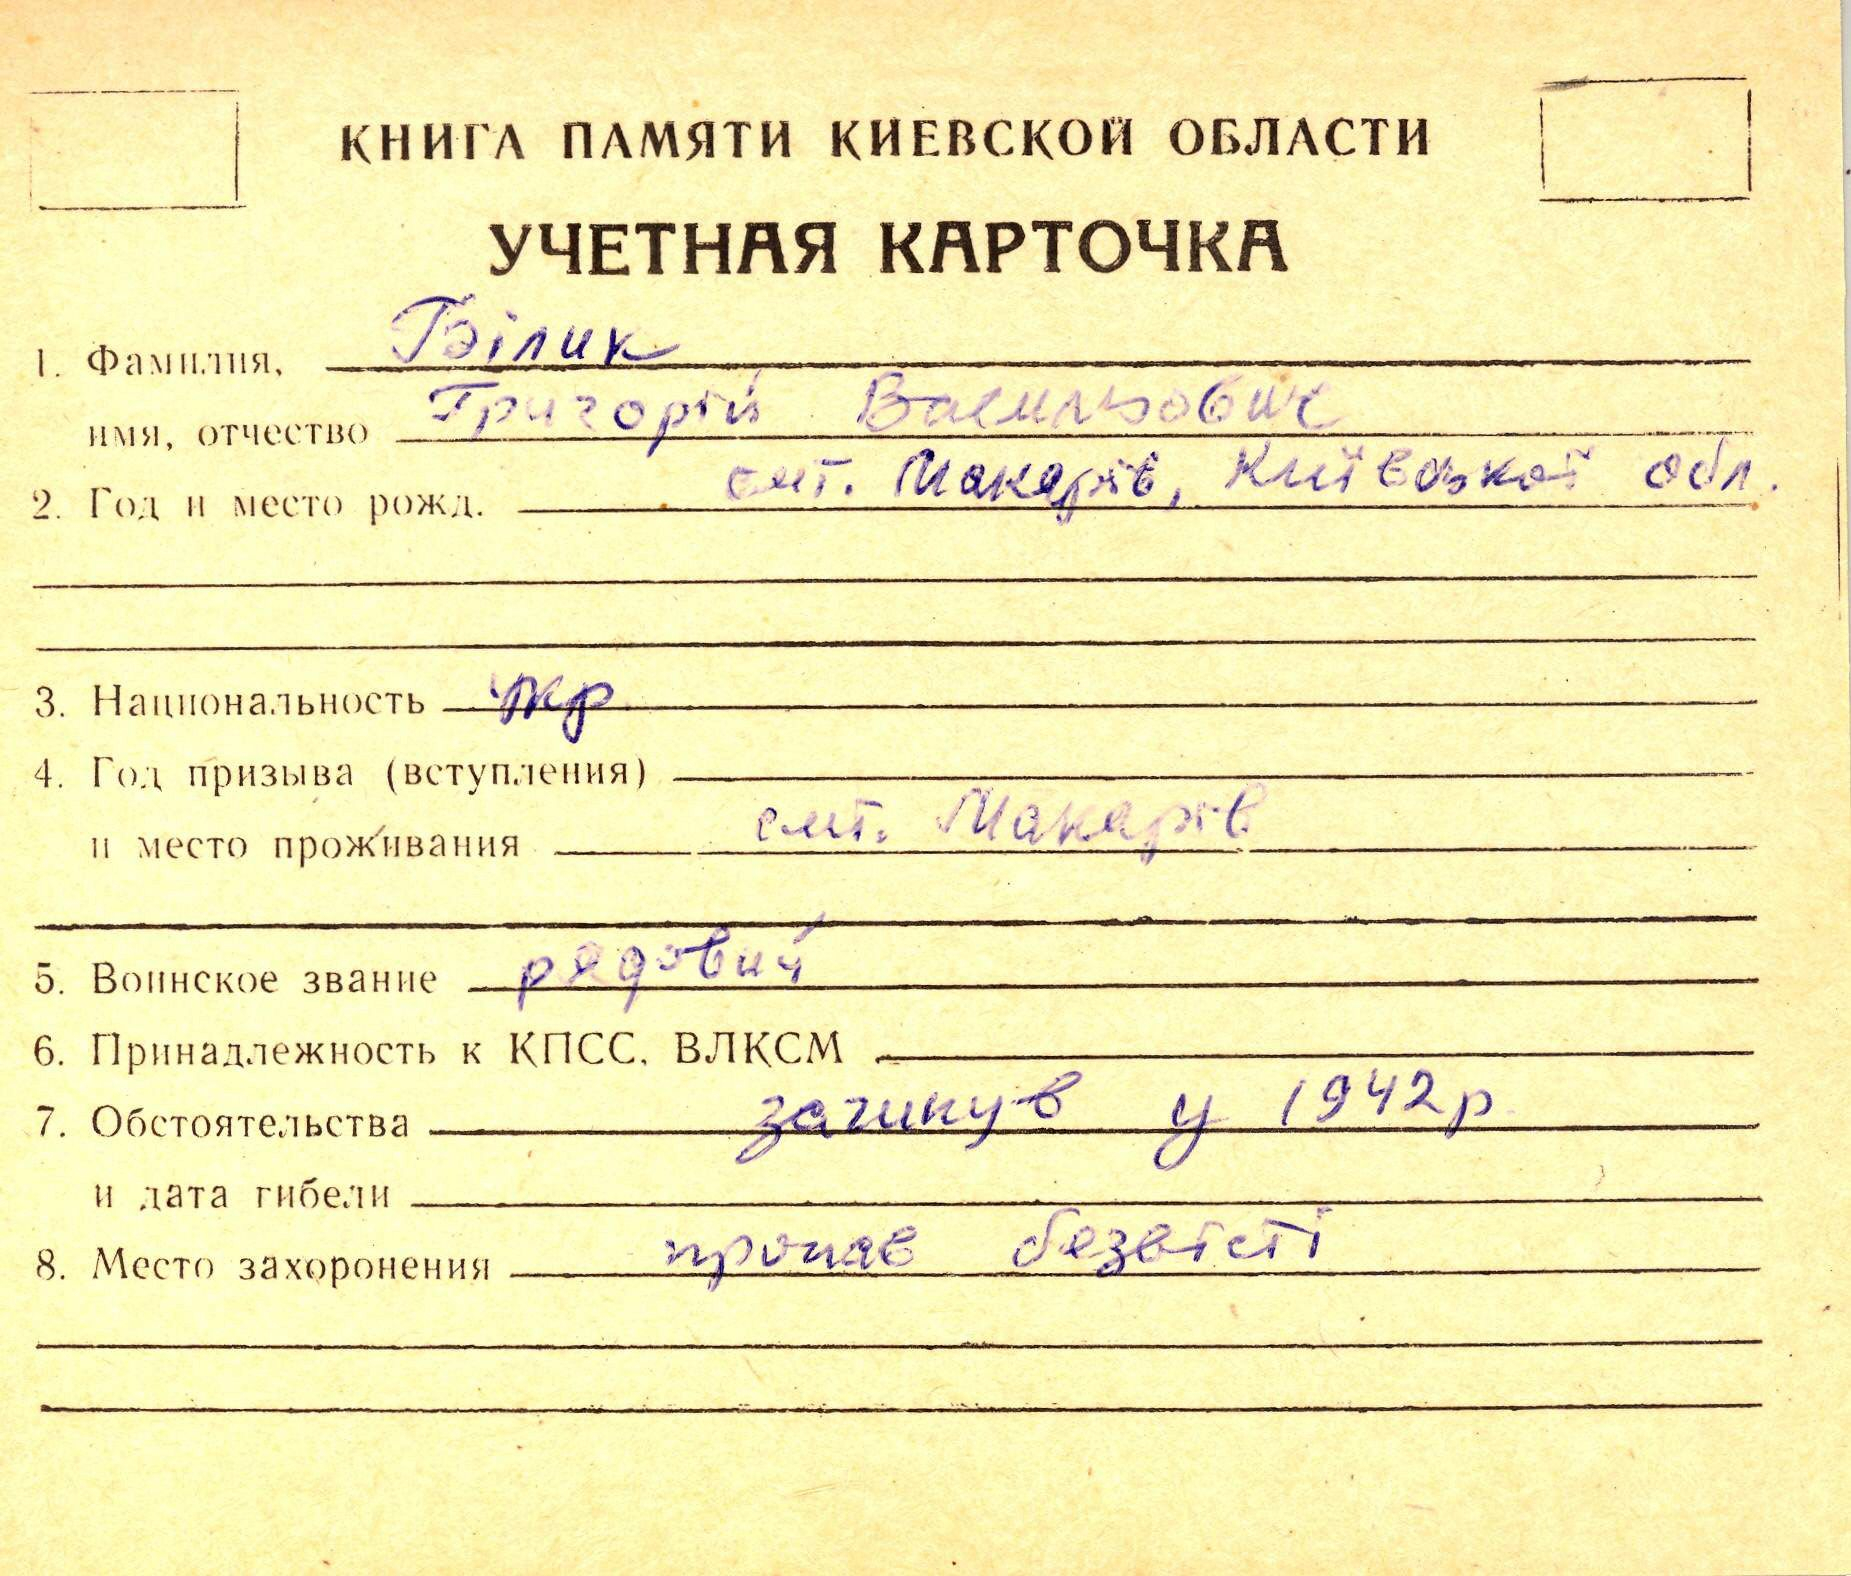 КНИГА ПАМЯТИ КИЕВСКОЙ ОБЛАСТИ
УЧЕТНАЯ КАРТОЧКА
1. Фамилия, Білик
имя, отчество Григорій Васильович
2. Год и место рожд. смт. Макарів, Київської обл.
3. Национальность укр
4. Год призыва (вступления)
и место проживания смт. Макарів
5. Воинское звание рядовий
6. Принадлежность к КПСС, ВЛКСМ
7. Обстоятельства загинув у 1942 р.
и дата гибели
8. Место захоронения пропав безвісті